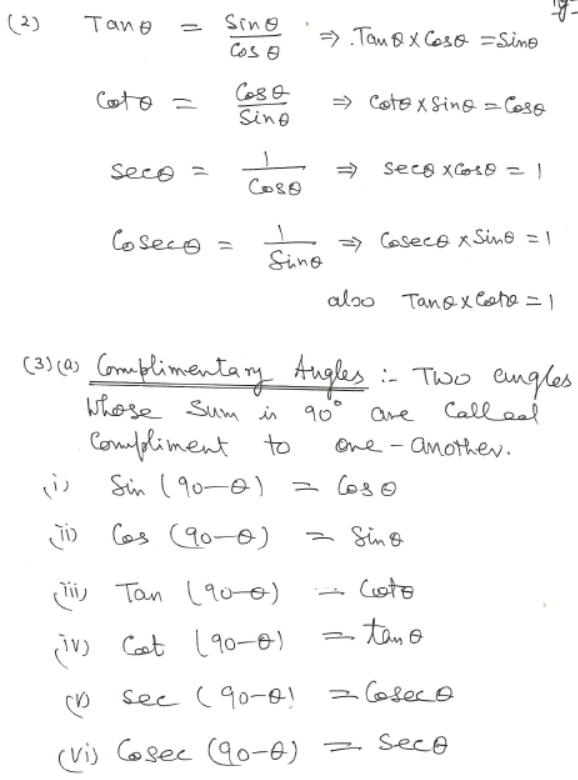 (2) Tanθ = Sinθ/Cosθ ⇒ .Tanθ×Cosθ = Sinθ
Cotθ = Cosθ/Sinθ ⇒ Cotθ×Sinθ = Cosθ
Secθ = 1/Cosθ ⇒ Secθ×Cosθ = 1
Cosecθ = 1/Sinθ ⇒ Cosecθ×Sinθ = 1
also Tanθ×Cotθ = 1
(3)(a) Complimentary Angles :- Two angles
Whose Sum is 90° are Called
Compliment to one-another.
(i) Sin (90-θ) = Cosθ
(ii) Cos (90-θ) = Sinθ
(iii) Tan (90-θ) = Cotθ
(iv) Cot (90-θ) = tanθ
(v) Sec (90-θ) = Cosecθ
(vi) Cosec (90-θ) = Secθ